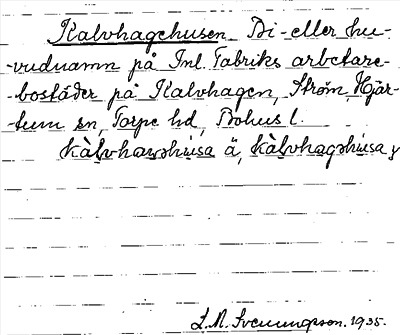 Kalvhagehusen Bi- eller hu-
-vudnamn på Inl. Fabriks arbetare-
-bostäder på Kalvhagen, Ström, Hjär-
-tum sn, Torpe hd, Bohus l.
kàlvhawshùsa ä, kàlvhagshùsa y
L.M. Svenungsson. 1935.